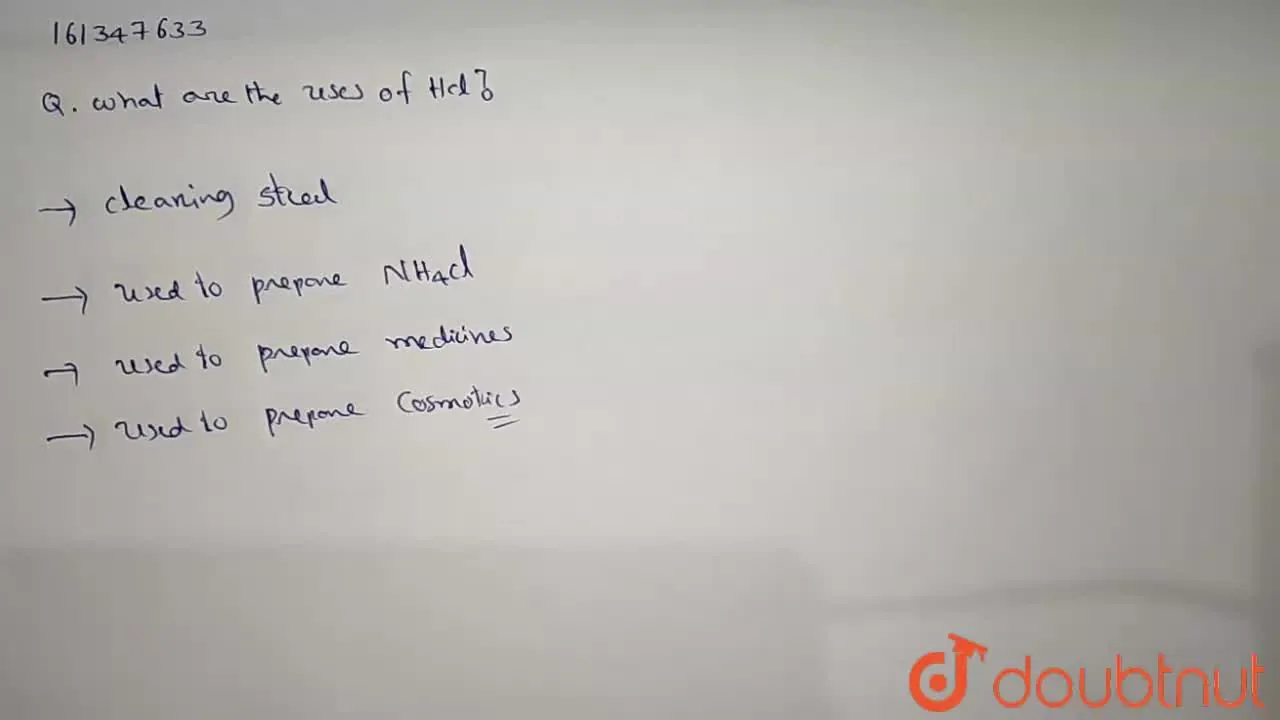 161347633
Q. what are the uses of Hcl?
→ cleaning steel
→ used to prepare NH4Cl
→ used to prepare medicines
→ used to prepare Cosmotics
doubtnut